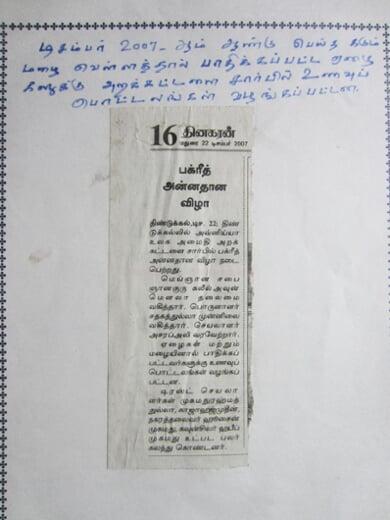 டிசம்பர் 2007-ஆம் ஆண்டு பெய்த கடும்
மழை வெள்ளத்தால் பாதிக்கப்பட்ட ஏழை
அறக்கட்டளை சார்பில் உணவுப்
பொட்டலங்கள் வழங்கப்பட்டன.
16 தினகரன்
மதுரை 22 டிசம்பர் 2007
பக்ரீத்
அன்னதான
விழா
திண்டுக்கல்,டிச. 22: திண்
டுக்கல்லில் அவ்னிய்யா
உலக அமைதி அறக்
கட்டளை சார்பில் பக்ரீத்
அன்னதான விழா நடை
பெற்றது.
மெய்ஞான சபை
ஞானகுரு கலீல் அவுன்
மௌலா தலைமை
வகித்தார். பொருளாளர்
சதகத்துல்லா முன்னிலை
வகித்தார். செயலாளர்
அசரப்அலி வரவேற்றார்.
ஏழைகள் மற்றும்
மழையினால் பாதிக்கப்
பட்டவர்களுக்கு உணவுப்
பொட்டலங்கள் வழங்கப்
பட்டன.
டிரஸ்ட் செயலா
ளர்கள் முகமதுரஹமத்
துல்லா, காஜாஹஜ்முதீன்,
நகரத்தலைவர் ஹுசைன்
முகமது, கவுன்சிலர் ஹபீப்
முகமது உட்பட பலர்
கலந்து கொண்டனர்.